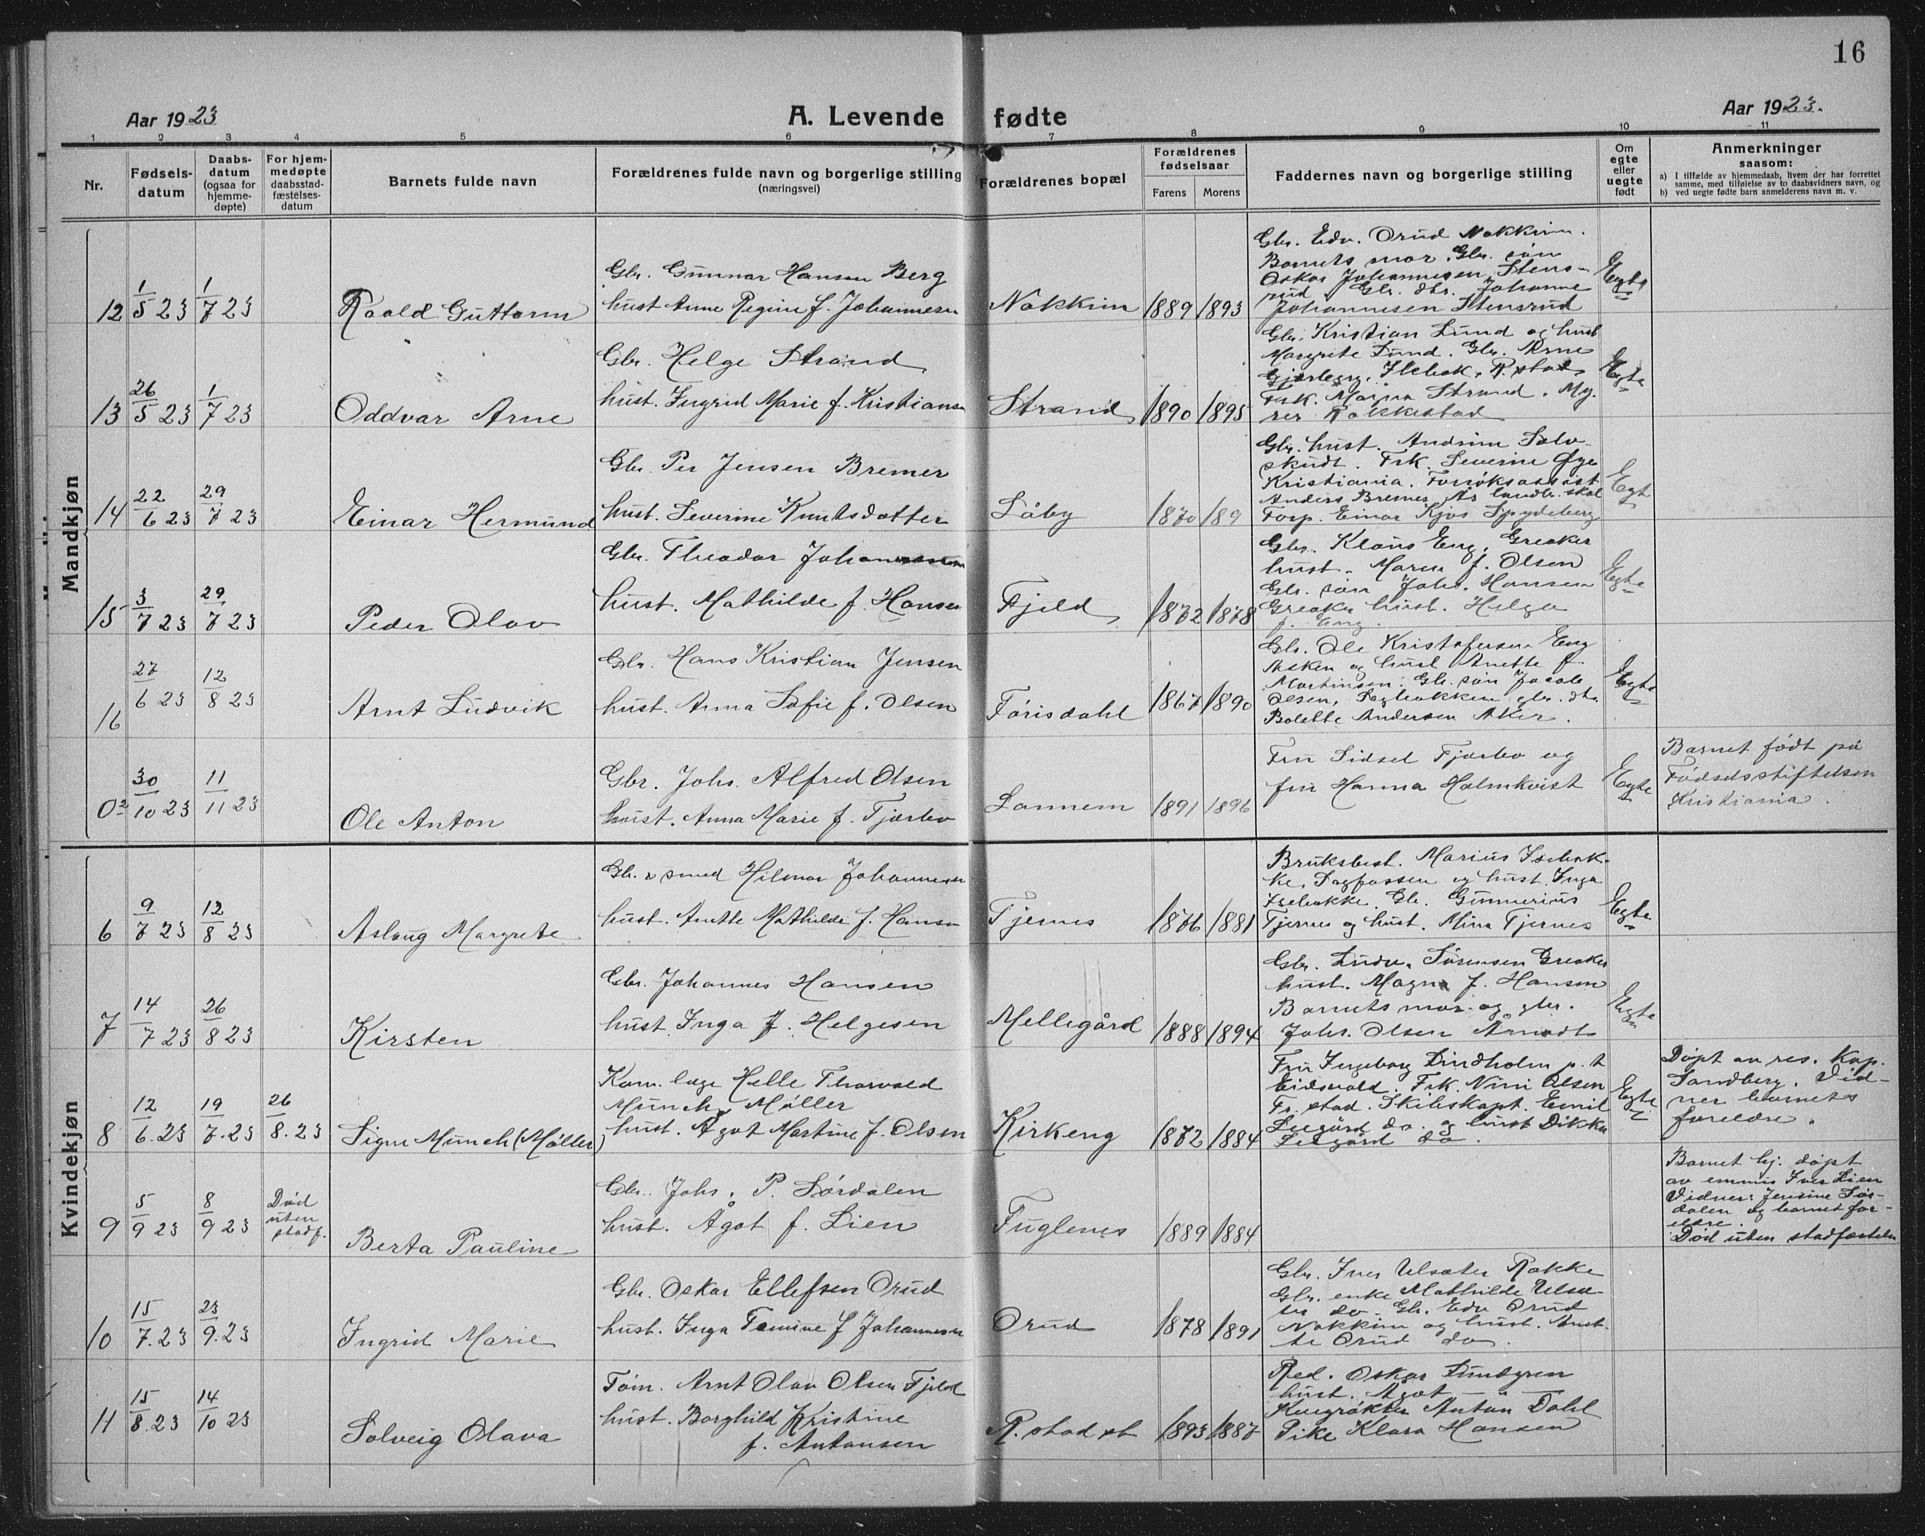 16
Aar 1923
A. Levende fødte
Aar 1923.
1 2 3 4 5 6 7 8 9 10 11
Nr.
Fødsels-
datum
Daabs-
datum
(ogsaa for
hjemme-
døpte)
For hjem-
medøpte
daabsstad-
fæstelses-
datum
Barnets fulde navn
Forældrenes fulde navn og borgerlige stilling
(næringsvei)
Forældrenes bopæl
Forældrenes
fødselsaar
Farens Morens
Faddernes navn og borgerlige stilling
Om
egte
eller
uegte
født
Anmerkninger
saasom:
a) I tilfælde av hjemmedaab, hvem der har forrettet
samme, med tilføielse av to daabsvidners navn, og
b) ved uegte fødte barn anmelderens navn m. v.
Mandkjøn
12 1/5 23 1/7 23 Roald Guttorm
Gbr. Gunnar Hansen Berg
hust. Anne Regine f. Johannesen
Nokkim 1889 1893
Gbr. Edv. Orud Nokkim.
Barnets mor. Gbr. søn
Oskar Johannesen, Stens-
rud Gbr. dtr. Johanne
Johannesen Stensrud
Egte
13 26/5 23 1/7 23 Oddvar Arne
Gbr. Helge Strand
hust. Ingrid Marie f. Kristiansen
Strand 1890 1895
Gbr. Kristian Lund og hust
Margrete Lund. Gbr. Arne
R.stad
Frk. Marna Strand. My-
rer Rakkestad
Egte
14 22/6 23 29/7 23 Einar Hermund
Gbr. Per Jensen Bremer
hust. Severine Knutsdotter
Låby 1870 189
Gbr. hust. Andrine Sølv-
skudt. Frk. Severine Øye
Kristiania. Forsøksassist
Anders Bremer, Ås landbr. skol
Forp. Einar Kjos Spydeberg
Egt
15 3/7 23 29/7 23 Peder Olav
Gbr. Theodor Johannessen
hust. Mathilde f. Hansen
Fjeld 1872 1878
Gbr. Klaus Eng, Greaker
hust. Maren f. Olsen
Gbr. søn Johs. Hansen
Greaker hust. Helga
f. Eng.
Egte
16 27/6 23 12/8 23 Arnt Ludvik
Gbr. Hans Kristian Jensen
hust. Anna Sofie f. Olsen
Tørisdahl 1867 1890
Gbr. Ole Kristofersen Eng
Asken og hust Anette f.
Martinsen. Gbr. søn Jacob
Olsen, Dagbakken gbr. dtr.
Bolette Andersen Aker.
Egte
02 30/10 23 11/11 23 Ole Anton
Gbr. Johs. Alfred Olsen
hust. Anna Marie f. Fjærbo
Lannem 1891 1896
Fru Sidsel Fjærbo og
fru Hanna Holmkvist
Egte
Barnet født på
Fødselsstiftelsen
Kristiania.
Kvindekjøn
6 9/7 23 12/8 23 Aslaug Margrete
Gbr. & smed Hilmar Johannesen
hust. Anette Mathilde f. Hansen
Tjernes 1876 1881
Bruksbest. Marius Isebak-
ke, Dagfossen og hust. Inga
Isebakke. Gbr. Gunnerius
Tjernes og hust. Mina Tjernes
Egte
7 14/7 23 26/8 23 Kirsten
Gbr. Johannes Hansen
hust. Inga f. Helgesen
Mellegård 1888 1894
Gbr. Ludv. Sørensen Greaker
hust. Magna f. Hansen
Barnets mor og gbr.
Johs. Olsen Arnodt
Egte
8 12/6.23 19/7.23 26/8.23 Signe Munch (Møller)
Kom. læge Helle Thorvald
Munch Møller
hust. Ågot Martine f. Olsen
Kirkeng 1872 1884
Fru Ingeborg Lindholm p. t
Eidsvold. Frk. Nini Olsen
Fr. stad. Skibskapt. Emil
Liegård do. og hust Dikka
Liegård do.
Egte
Døpt av res. kap.
Sandberg. Vid-
ner barnets
forældre.
9 5/9 23 8/9 23 Død
uten
stadf.
Berta Pauline
Gbr. Johs. P. Sørdalen
hust. Ågot f. Lien
Fuglenes 1889 1884
Barnet hj. døpt
av emmis Iver Lien
Vidner: Jensine Sør-
dalen og barnet for-
ældre.
Død uten stadfæstelse
10 15/7.23 23/9.23 Ingrid Marie
Gbr. Oskar Ellefsen Orud
hust. Inga Tomine f Johannesen
Orud 1878 1891
Gbr. Iver Ulsæter Rakke
Gbr. enke Mathilde Ulsæ-
ter do. Gbr. Edv Orud
Nokkim og hust. Anet-
te Orud do
11 15/8.23 14/10 23 Solveig Olava
Tøm. Arnt Olav Olsen Fjeld
hust. Borghild Kristine
f. Antonsen
R.stad st 1893 1887
Red. Oskar Lundgren
hust. Ågot
Kvegrøkter Anton Dahl
Pike Klara Hansen